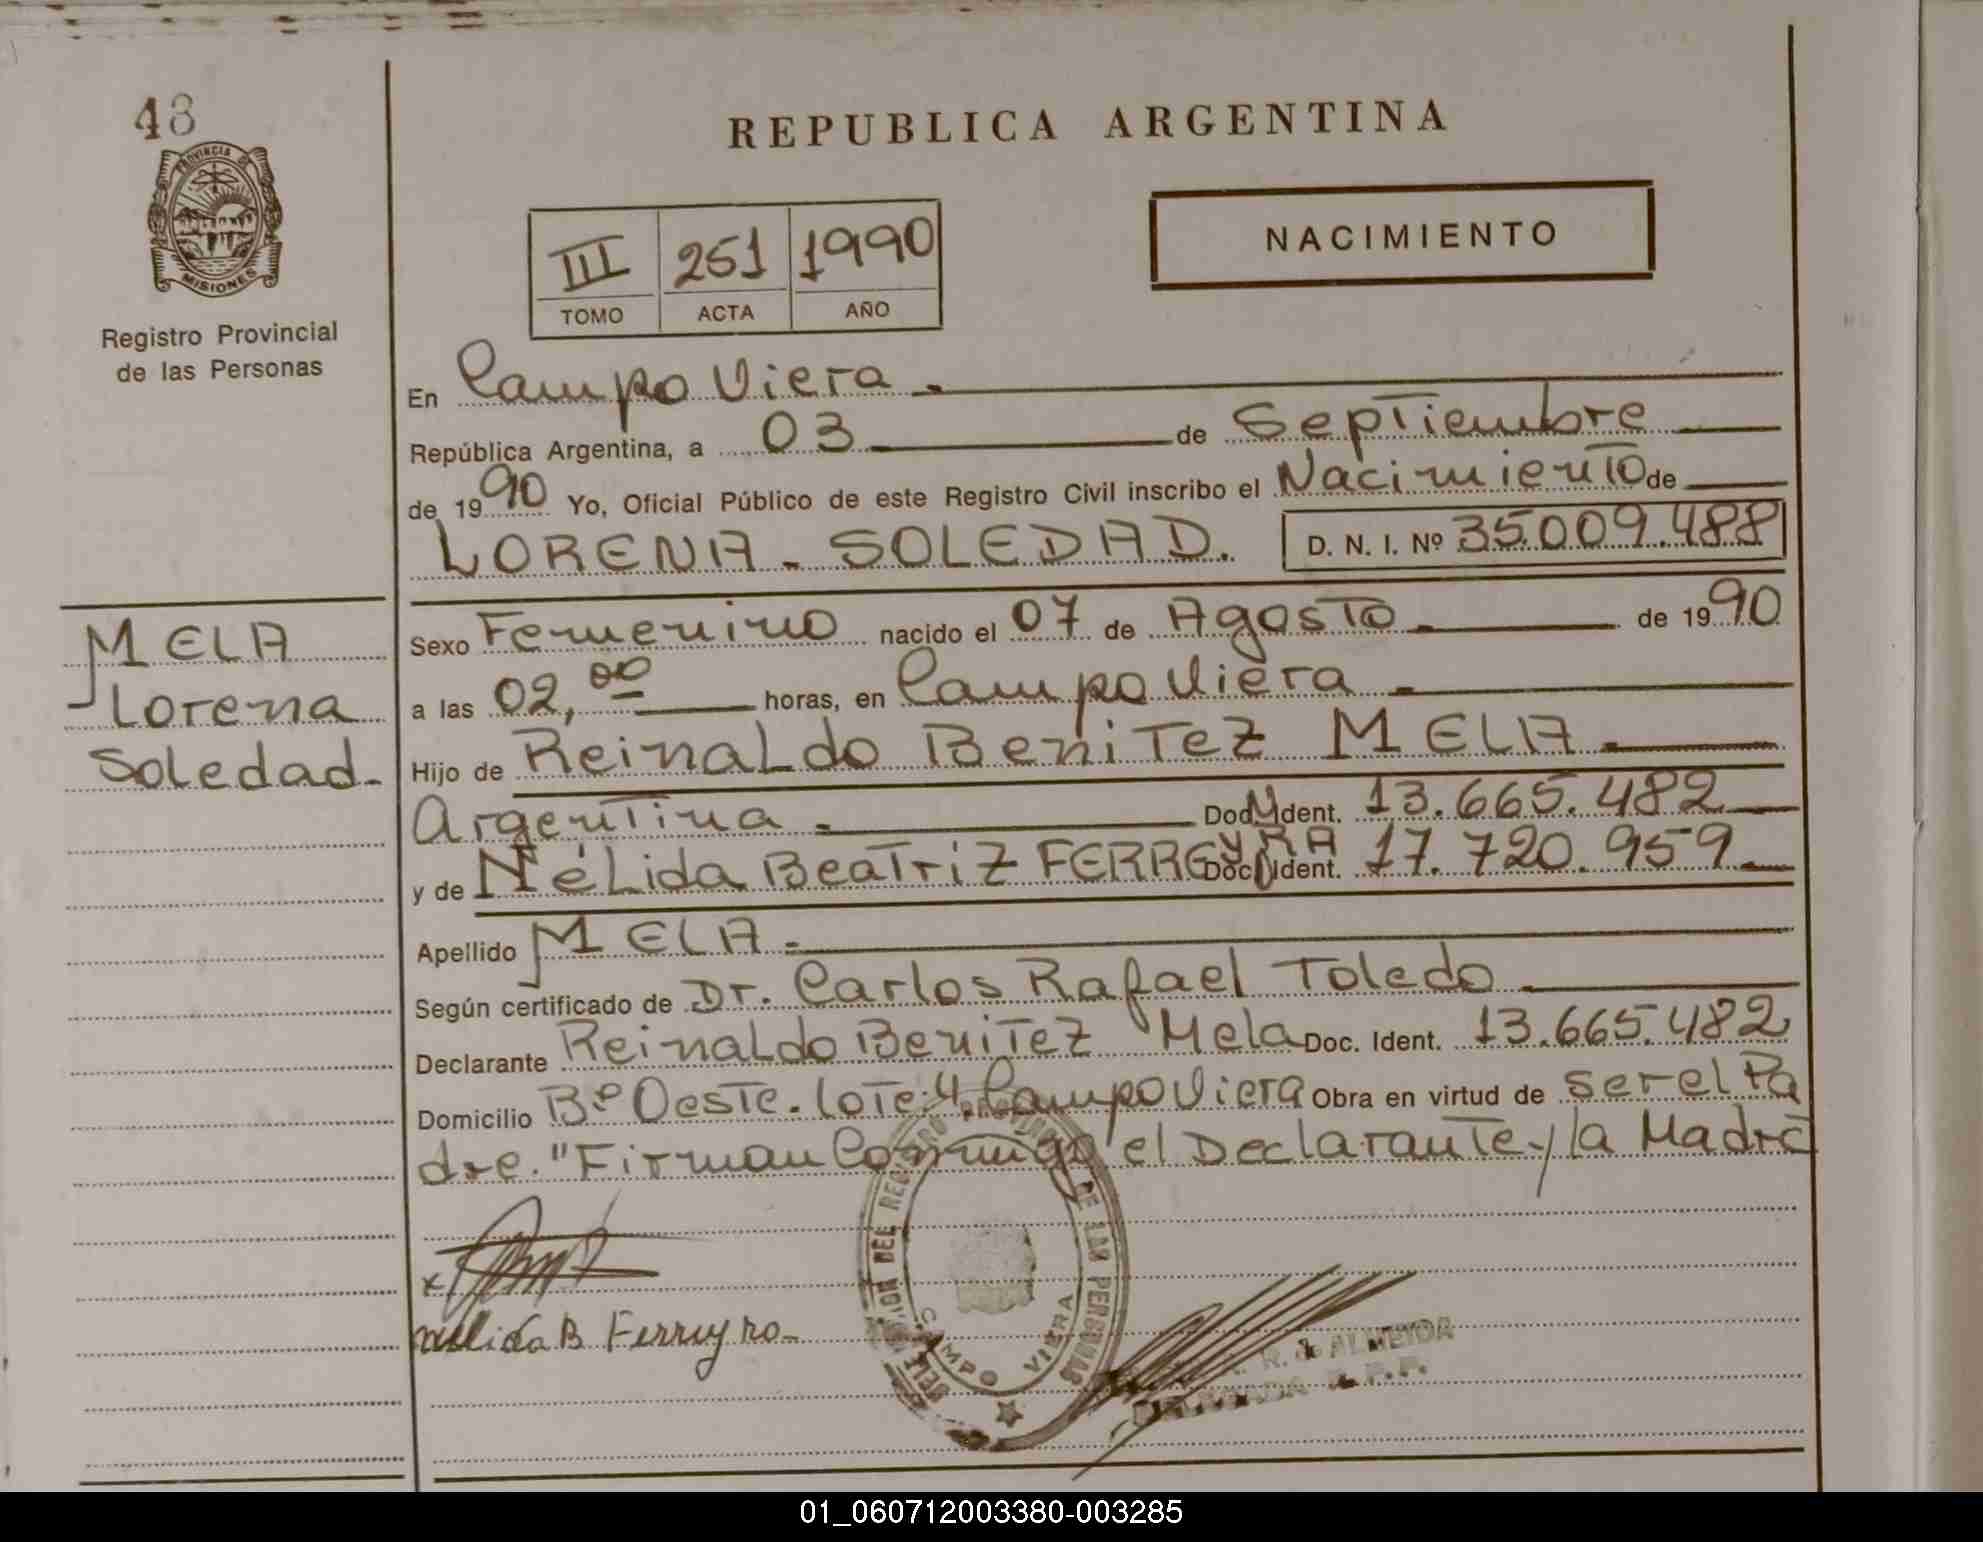 48
PROVINCIA DE
MISIONES
Registro Provincial
de las Personas
REPUBLICA ARGENTINA
III 251 1990
TOMO ACTA AÑO
NACIMIENTO
En Campo Viera.
República Argentina, a 03 de Septiembre
de 1990 Yo, Oficial Público de este Registro Civil inscribo el Nacimiento de
LORENA - SOLEDAD. D. N. I. Nº 35.009.488
MELA
Lorena
Soledad-
Sexo Femenino nacido el 07 de Agosto de 1990
a las 02,00 horas, en Campo Viera
Hijo de Reinaldo Benitez MELA
Argentina Doc. Ident. 13.665.482
y de Nélida Beatriz FERREYRA Doc. Ident. 17.720.959
Apellido MELA
Según certificado de Dr. Carlos Rafael Toledo
Declarante Reinaldo Benitez Mela Doc. Ident. 13.665.482
Domicilio Bº Oeste. lote 4. Campo Viera Obra en virtud de ser el Pa
dre. "Firman Conmigo el Declarante y la Madre
x
nelida B Ferreyra
DEL REGISTRO PROVINCIAL DE LAS PERSONAS
CAMPO VIERA
R. de ALMEIDA
01_060712003380-003285